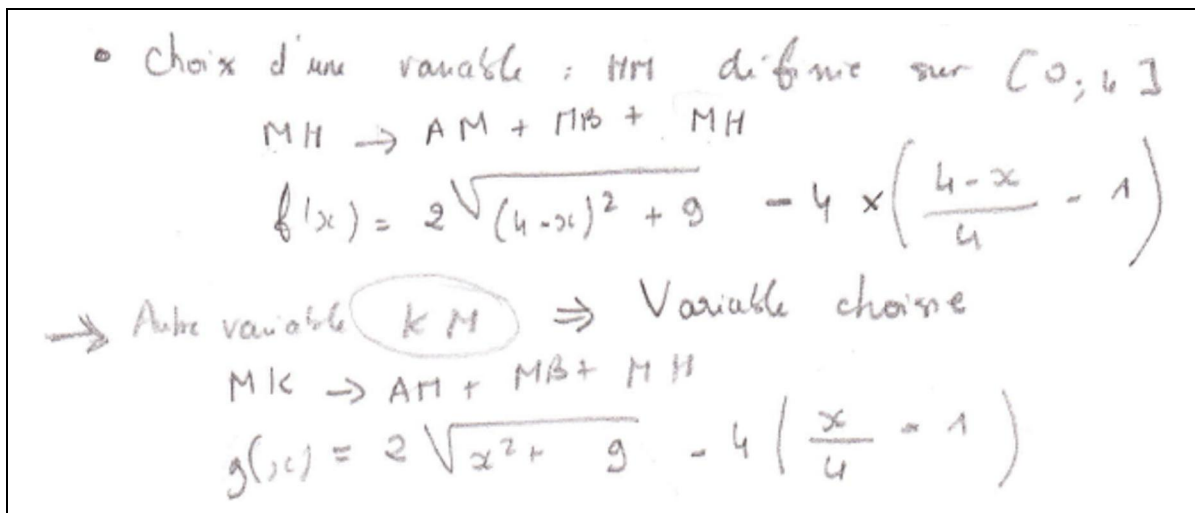 • Choix d'une variable : HM définie sur [0; 4]
MH → AM + MB + MH
f(x) = 2√((4-x)² + 9) - 4 × ((4-x)/4 - 1)
→ Autre variable KM ⇒ Variable choisie
MK → AM + MB + MH
g(x) = 2√(x² + 9) - 4 (x/4 - 1)